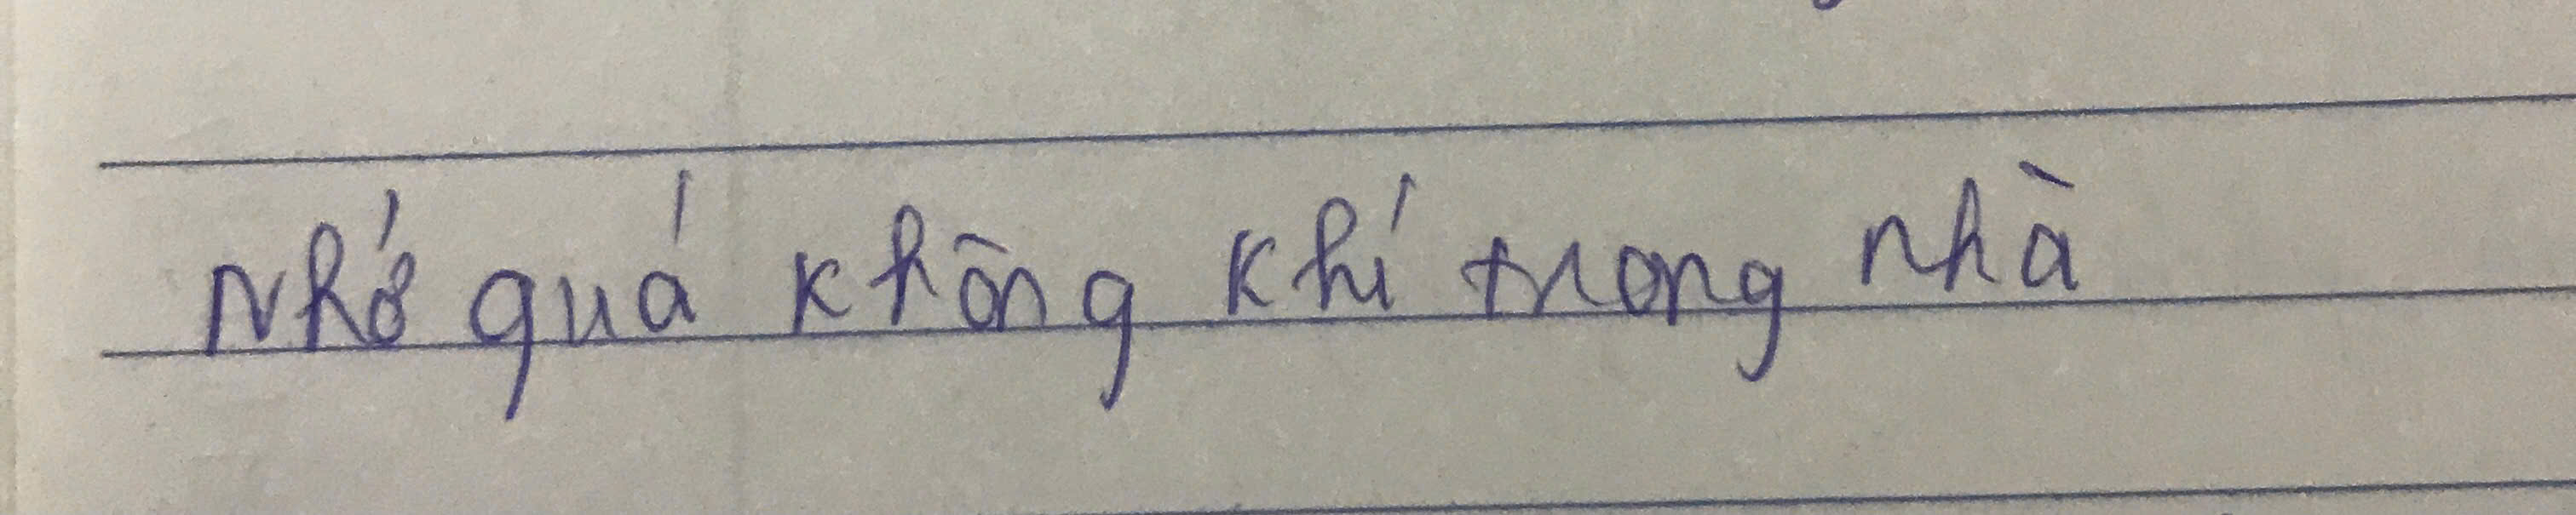 Nhớ quá không khí trong nhà